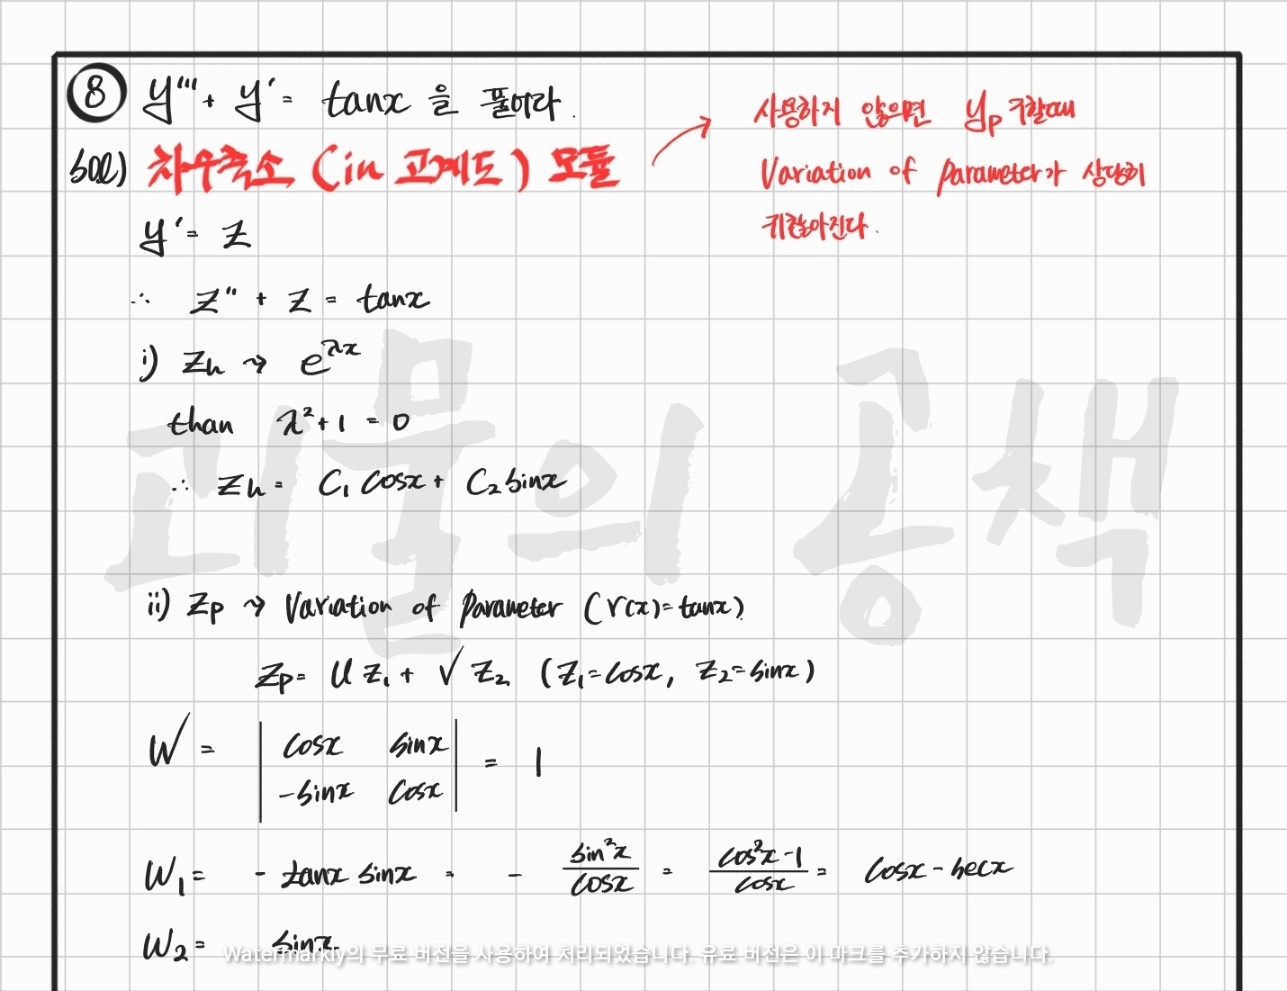 ⑧ y''' + y' = tanx 을 풀어라.
sol) 차수축소 (in 고계도) 모듈
사용하지 않으면 yp 구할때
Variation of parameter가 상당히
귀찮아진다.
y' = z
∴ z'' + z = tanx
i) zh → e^λx
than λ²+1 = 0
∴ zh = C₁ cosx + C₂ sinx
괴물의 공책
ii) zp → Variation of parameter (r(x)=tanx).
zp = u z₁ + v z₂ (z₁=cosx, z₂=sinx)
W = | cosx sinx | = 1
| -sinx cosx |
W₁ = - tanx sinx = - sin²x/cosx = cos²x-1/cosx = cosx - secx
W₂ = sinx
Watermarkly의 무료 버전을 사용하여 처리되었습니다. 유료 버전은 이 마크를 추가하지 않습니다.